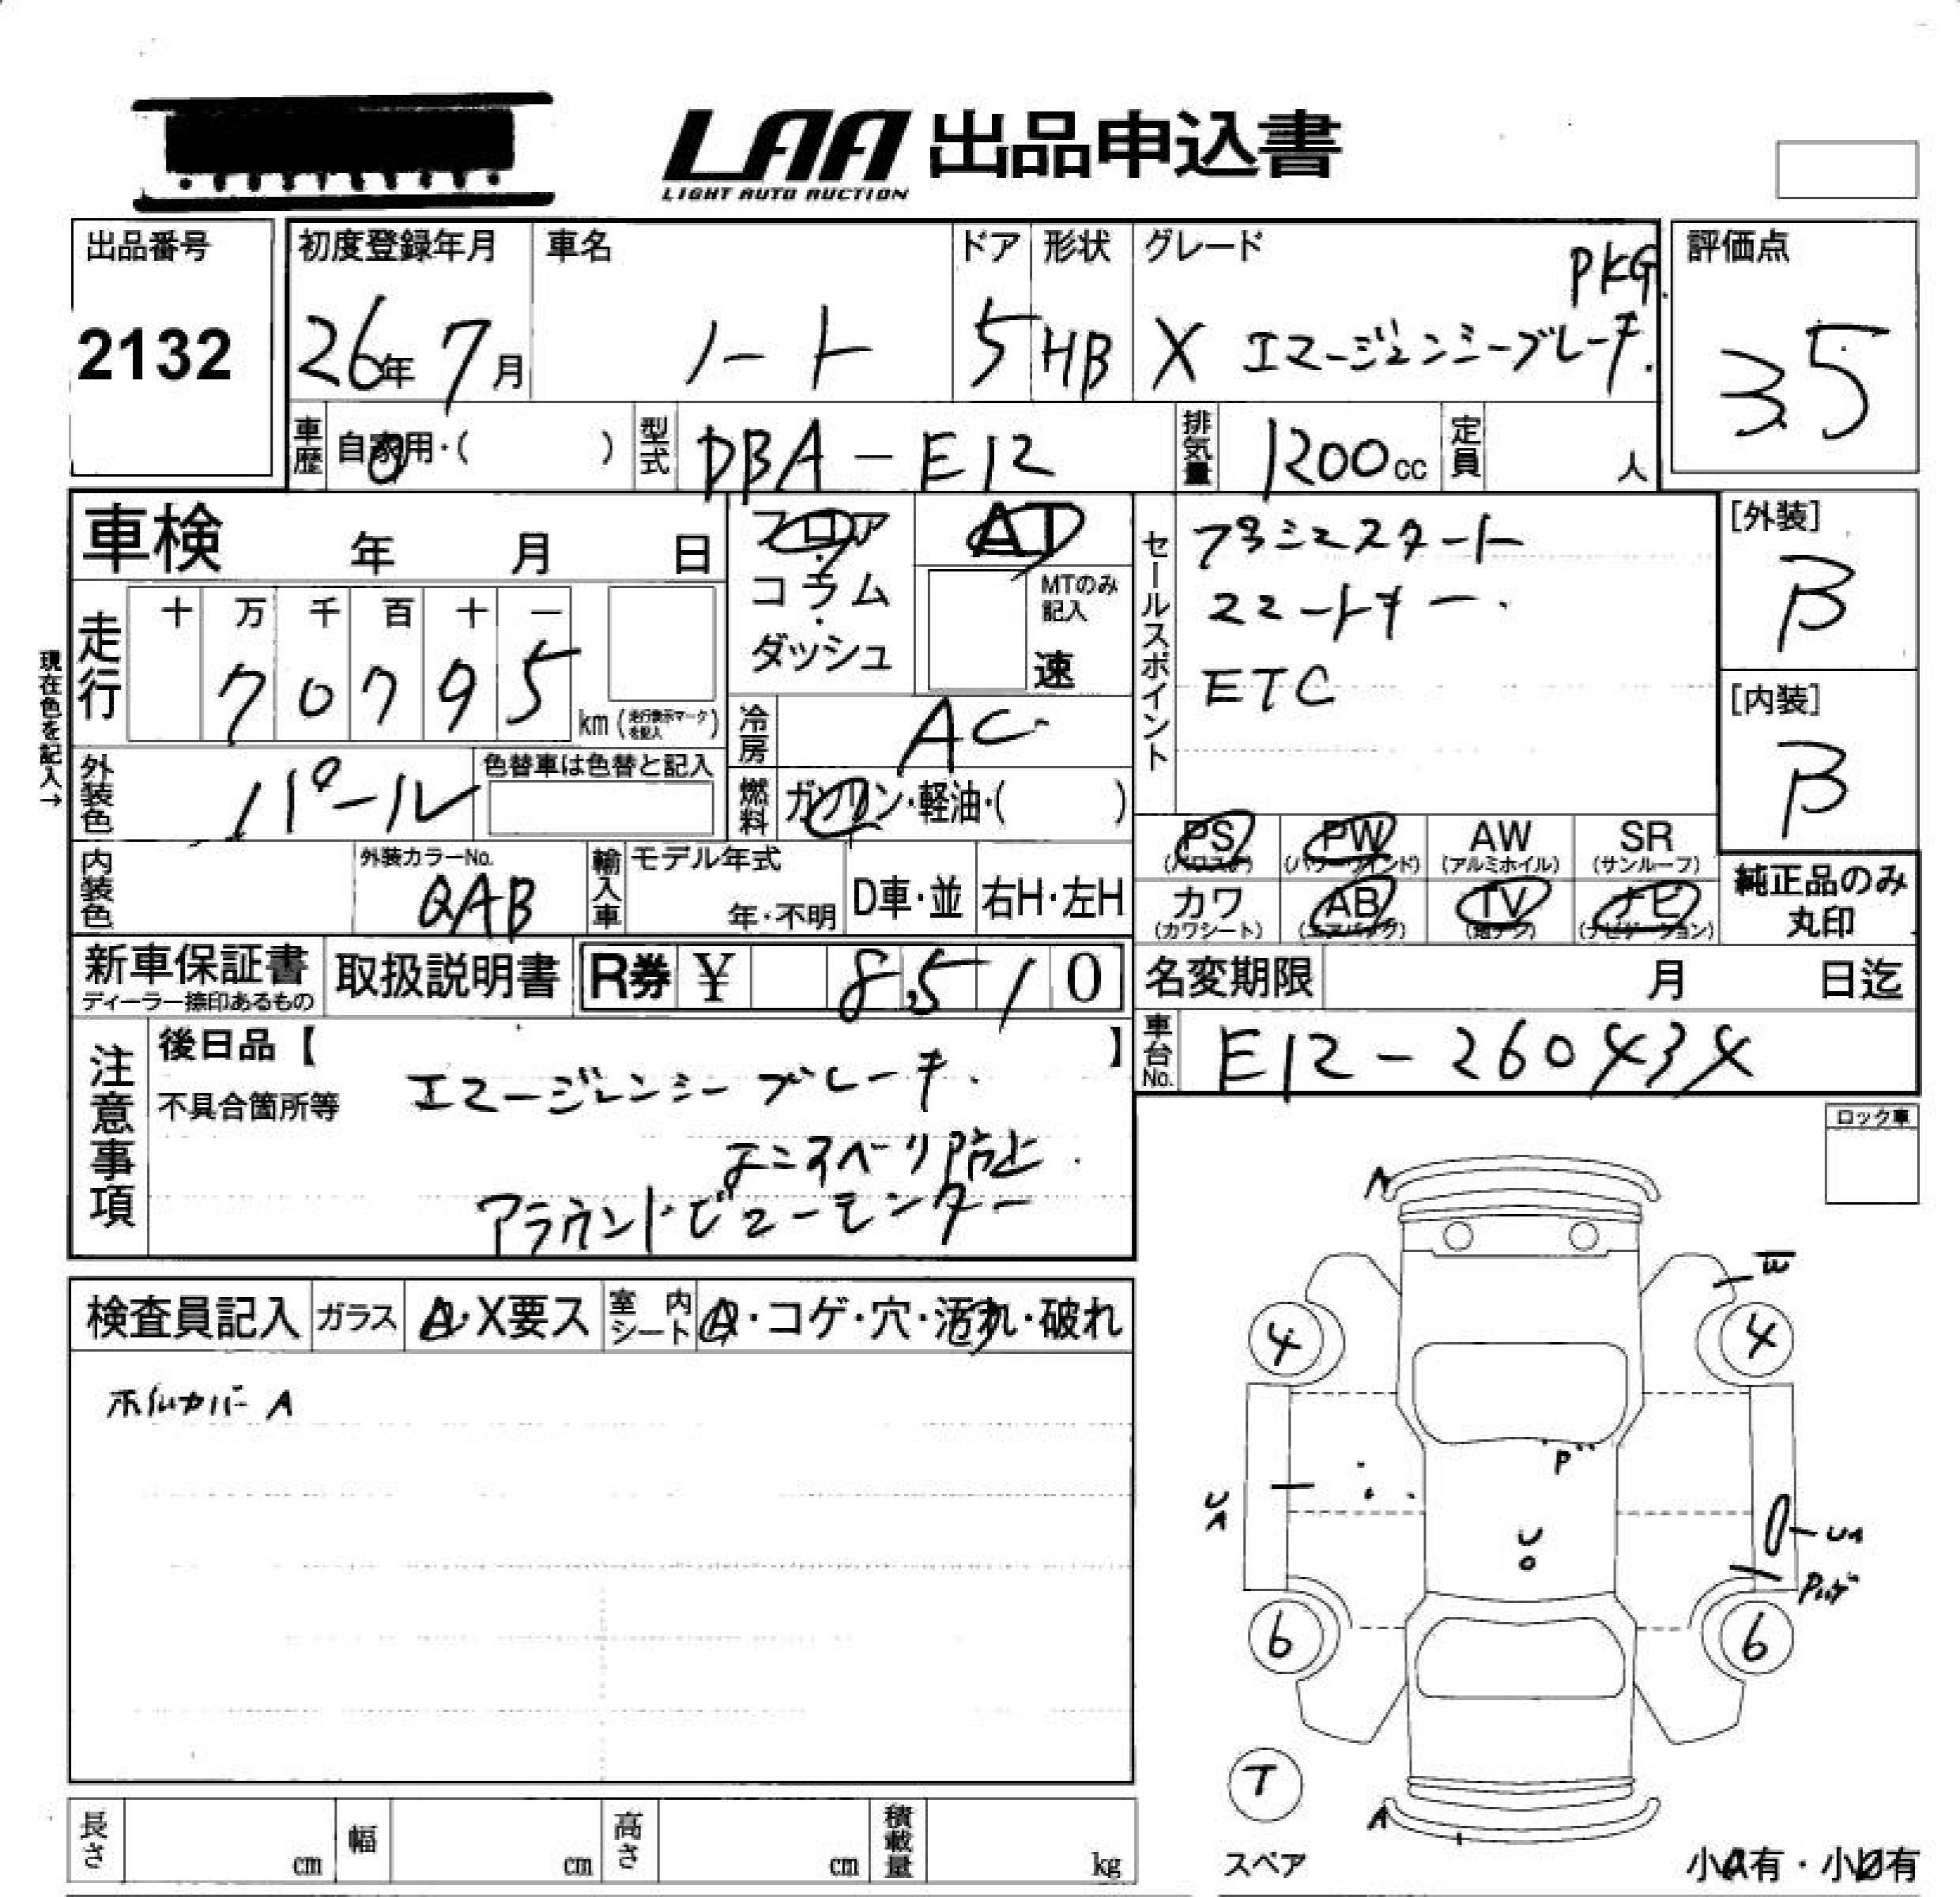 LAA 出品申込書
LIGHT AUTO AUCTION
出品番号
2132
初度登録年月
26年 7月
車名
ノート
ドア
5
形状
HB
グレード
PKG.
X エマージェンシーブレーキ.
評価点
35
車歴
自家用・( )
型式
DBA-E12
排気量
1200cc
定員
人
車検 年 月 日
フロア・コラム・ダッシュ
AT
MTのみ記入
速
セールスポイント
プッシュスタート
スマートキー.
ETC
[外装]
B
[内装]
B
現在色を記入→
走行
十 万 千 百 十 一
7 0 7 9 5
km (走行表示マークを記入)
冷房
AC
外装色
パール
色替車は色替と記入
燃料
ガソリン・軽油・( )
PS
(パワステ)
PW
(パワーウインド)
AW
(アルミホイル)
SR
(サンルーフ)
内装色
外装カラーNo.
QAB
輸入車
モデル年式
年・不明
D車・並
右H・左H
カワ
(カワシート)
AB
(エアバッグ)
TV
(地デジ)
ナビ
(ナビゲーション)
純正品のみ
丸印
新車保証書
ディーラー捺印あるもの
取扱説明書
R券 ¥ 8,510
名変期限 月 日迄
車台No.
E12-260434
注意事項
後日品【 】
不具合箇所等
エマージェンシーブレーキ.
よこすべり防止.
アラウンドビューモニター
ロック車
検査員記入
ガラス
A・X要ス
室内シート
A・コゲ・穴・汚れ・破れ
ホイルカバーA
A
E
4
4
P
UA
U
UA
6
6
T
A
スペア
小A有・小U有
長さ cm
幅 cm
高さ cm
積載量 kg